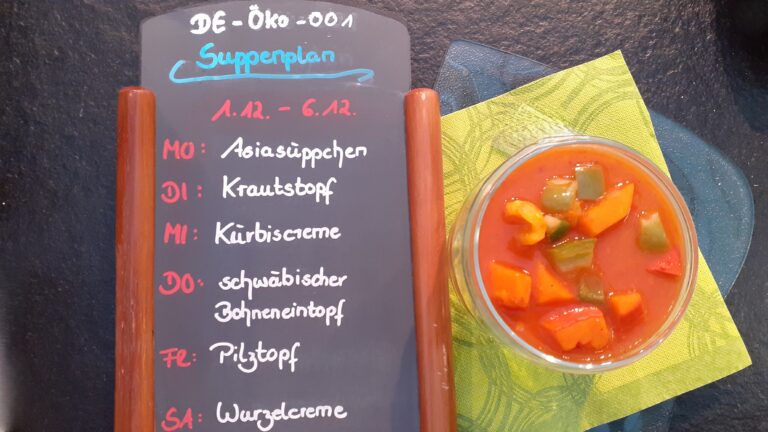 DE-Öko-001
Suppenplan
1.12. - 6.12.
MO: Asiasüppchen
DI: Krautstopf
MI: Kürbiscreme
DO: schwäbischer
Bohneneintopf
FR: Pilztopf
SA: Wurzelcreme